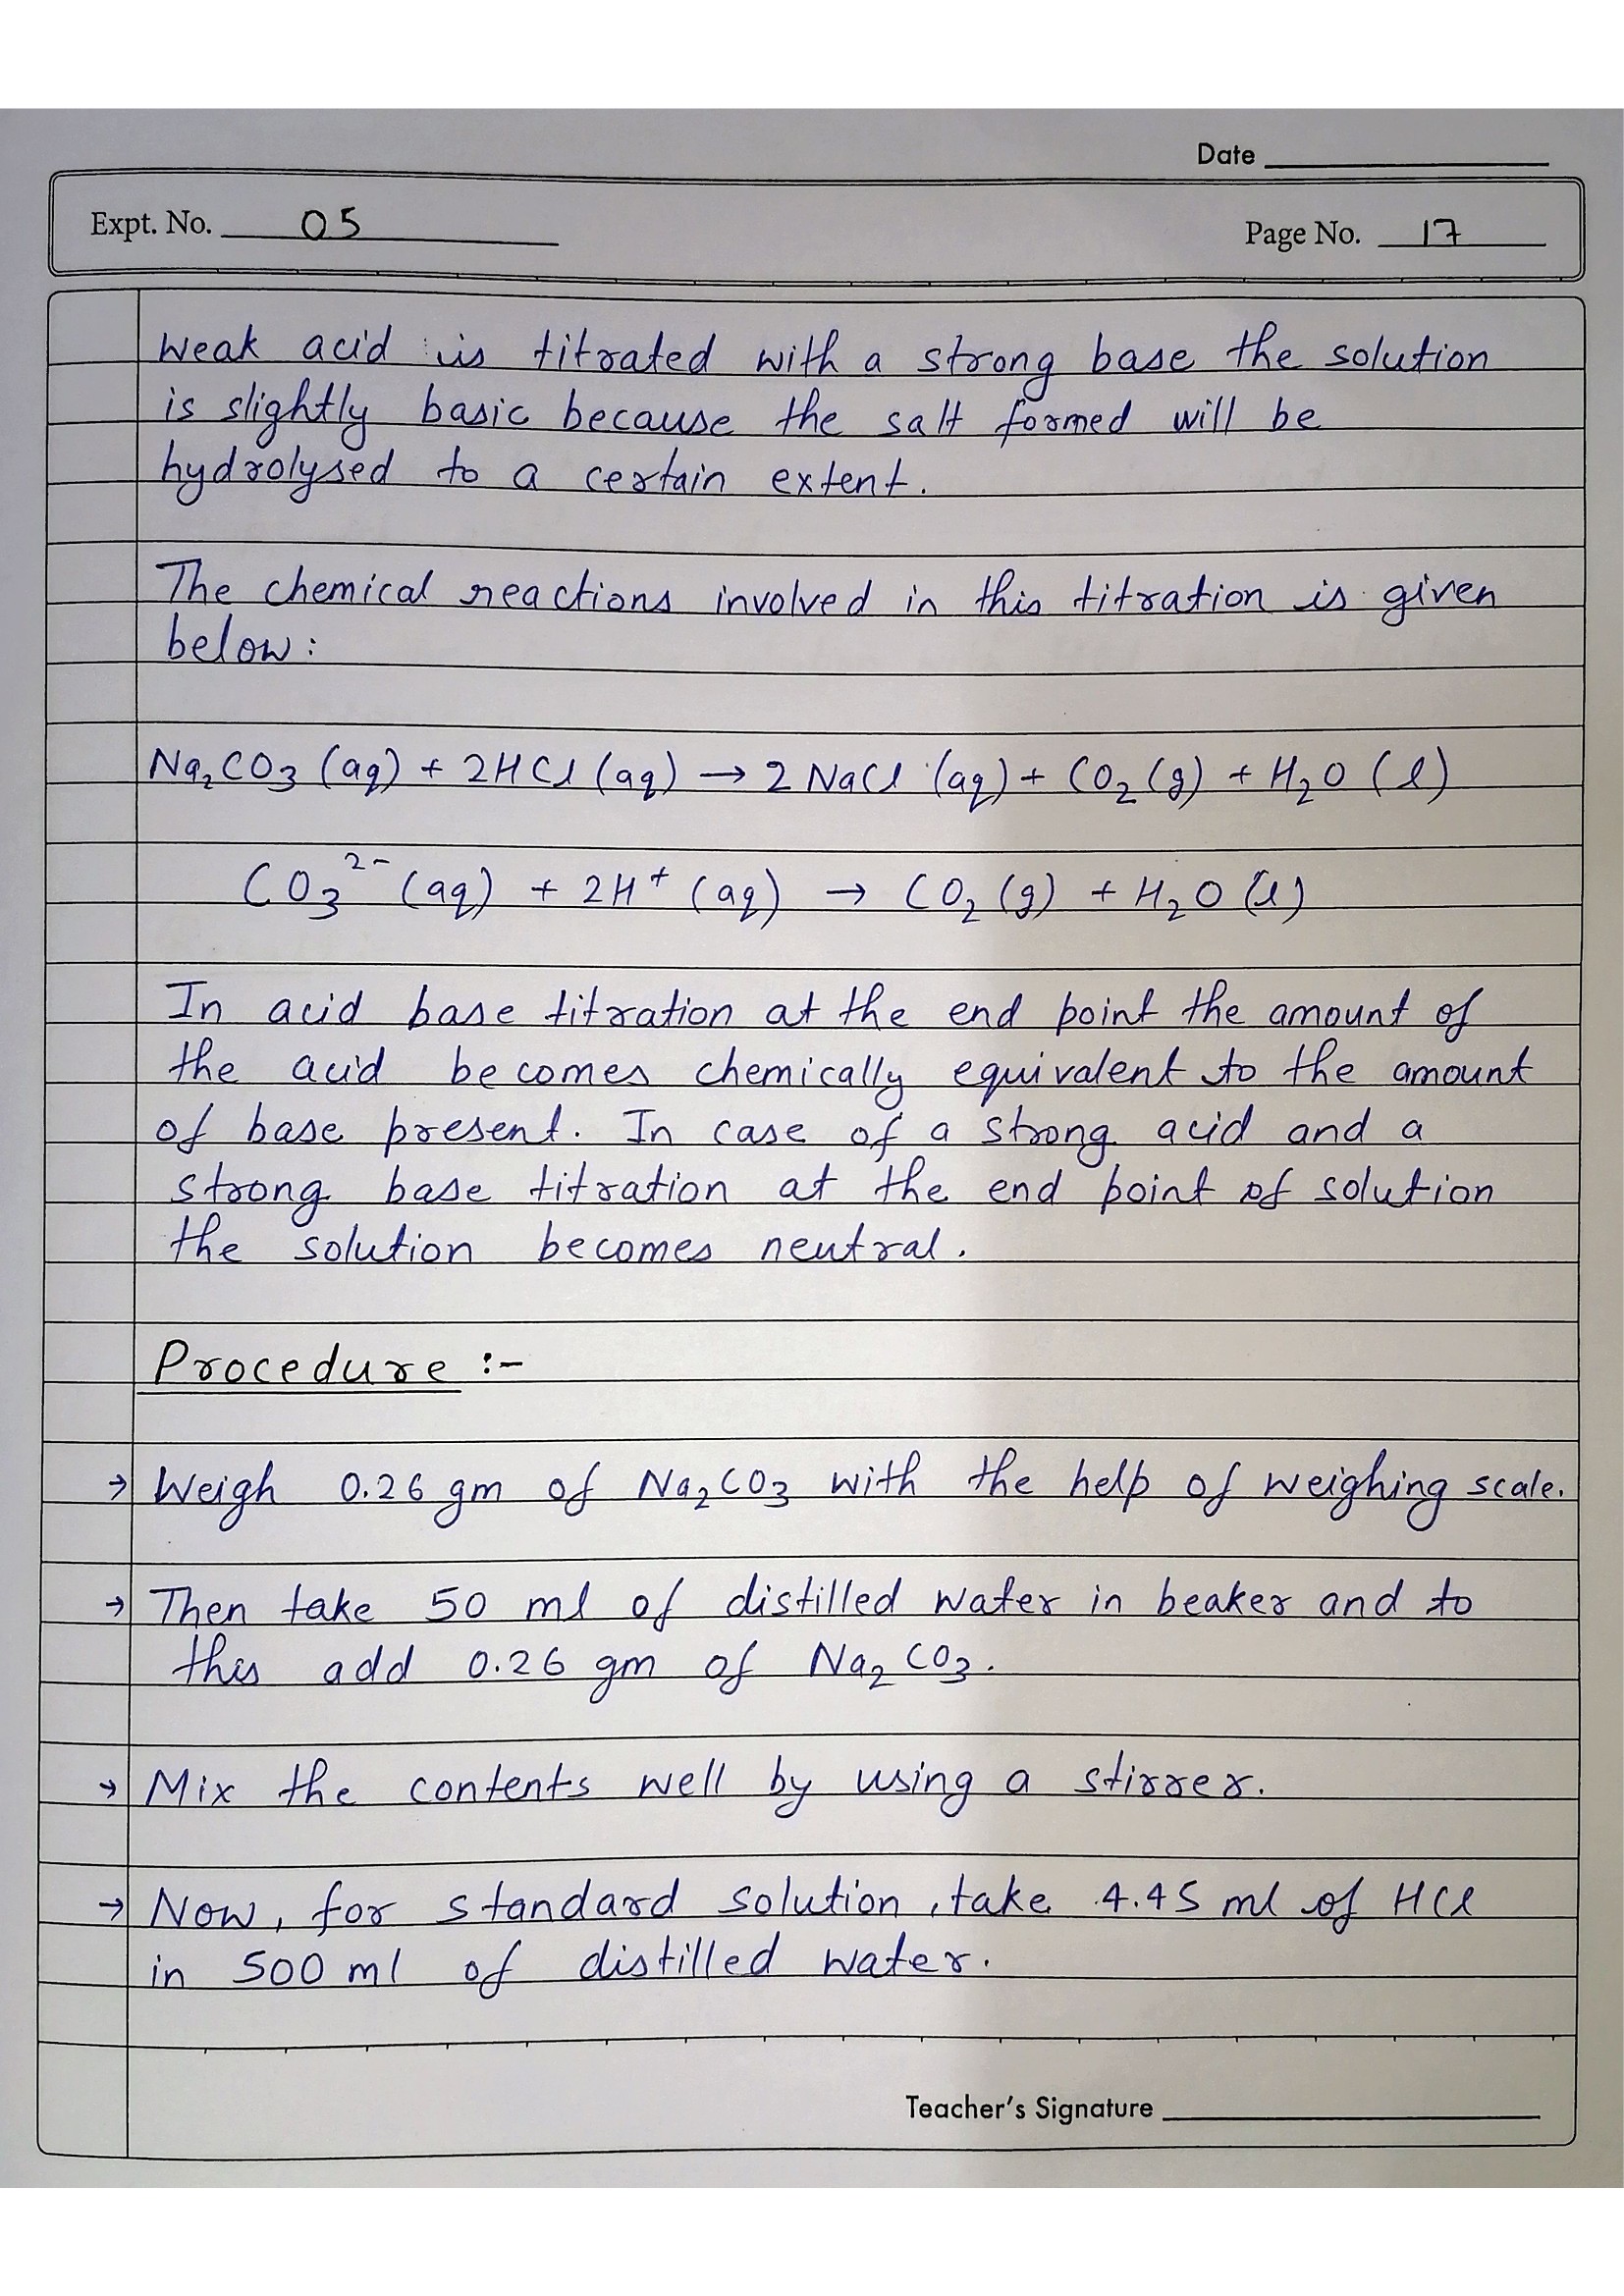 Date
Expt. No. 05
Page No. 17
Weak acid is titrated with a strong base the solution
is slightly basic because the salt formed will be
hydrolysed to a certain extent.
The chemical reactions involved in this titration is given
below:
Na₂CO₃ (aq) + 2HCl (aq) → 2NaCl (aq) + CO₂ (g) + H₂O (l)
CO₃²⁻ (aq) + 2H⁺ (aq) → CO₂ (g) + H₂O (l)
In acid base titration at the end point the amount of
the acid becomes chemically equivalent to the amount
of base present. In case of a strong acid and a
strong base titration at the end point of solution
the solution becomes neutral.
Procedure :-
→ Weigh 0.26 gm of Na₂CO₃ with the help of weighing scale.
→ Then take 50 ml of distilled water in beaker and to
this add 0.26 gm of Na₂CO₃.
→ Mix the contents well by using a stirrer.
→ Now, for standard solution, take 4.45 ml of HCl
in 500 ml of distilled water.
Teacher's Signature